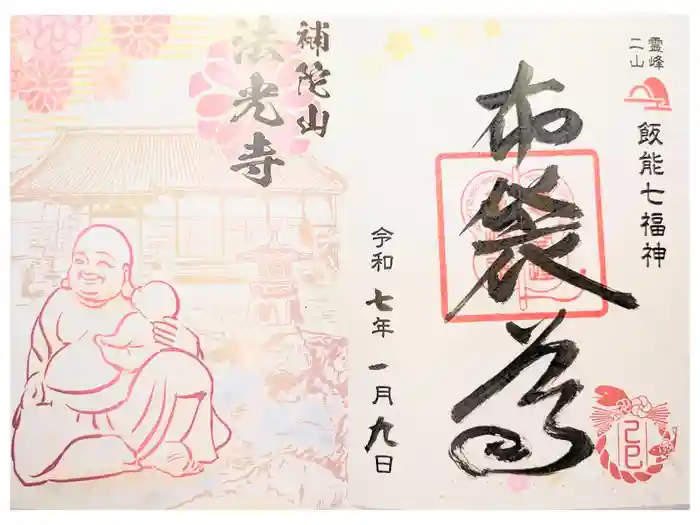 霊峰
二山
飯能七福神
布袋尊
令和七年一月九日
補陀山
法光寺
巳